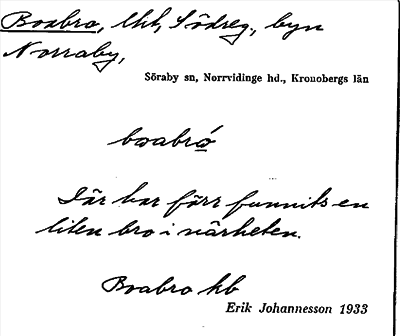 Boabro, lht, Södreg., byn
Norraby,
Söraby sn, Norrvidinge hd., Kronobergs län
boabró
Där har förr funnits en
liten bro i närheten.
Boabro hb
Erik Johannesson 1933